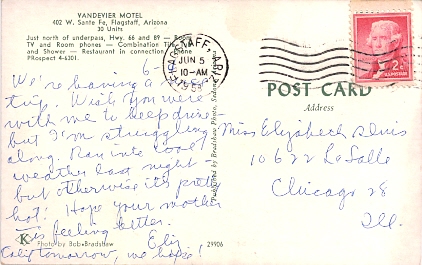 VANDEVIER MOTEL
402 W. Santa Fe, Flagstaff, Arizona
30 Units
Just north of underpass, Hwy. 66 and 89 —
TV and Room phones — Combination
and Shower — Restaurant in connection
PRospect 4-6301.
FLAGSTAFF, ARIZ.
JUN 5
10-AM
2¢
POST CARD
Address
6-
We're having a nice
trip. Wish you were
with me to keep
but I'm struggling
along. Ran into cool
weather last night -
but otherwise it's pretty
hot! Hope your mother
is feeling better.
Eliz
Calif tomorrow, we hope!
Miss Elizabeth Davis
10622 LaSalle
Chicago 28
Ill.
Published by Bradshaw Photo, Sedona
K
Photo by Bob Bradshaw
29906